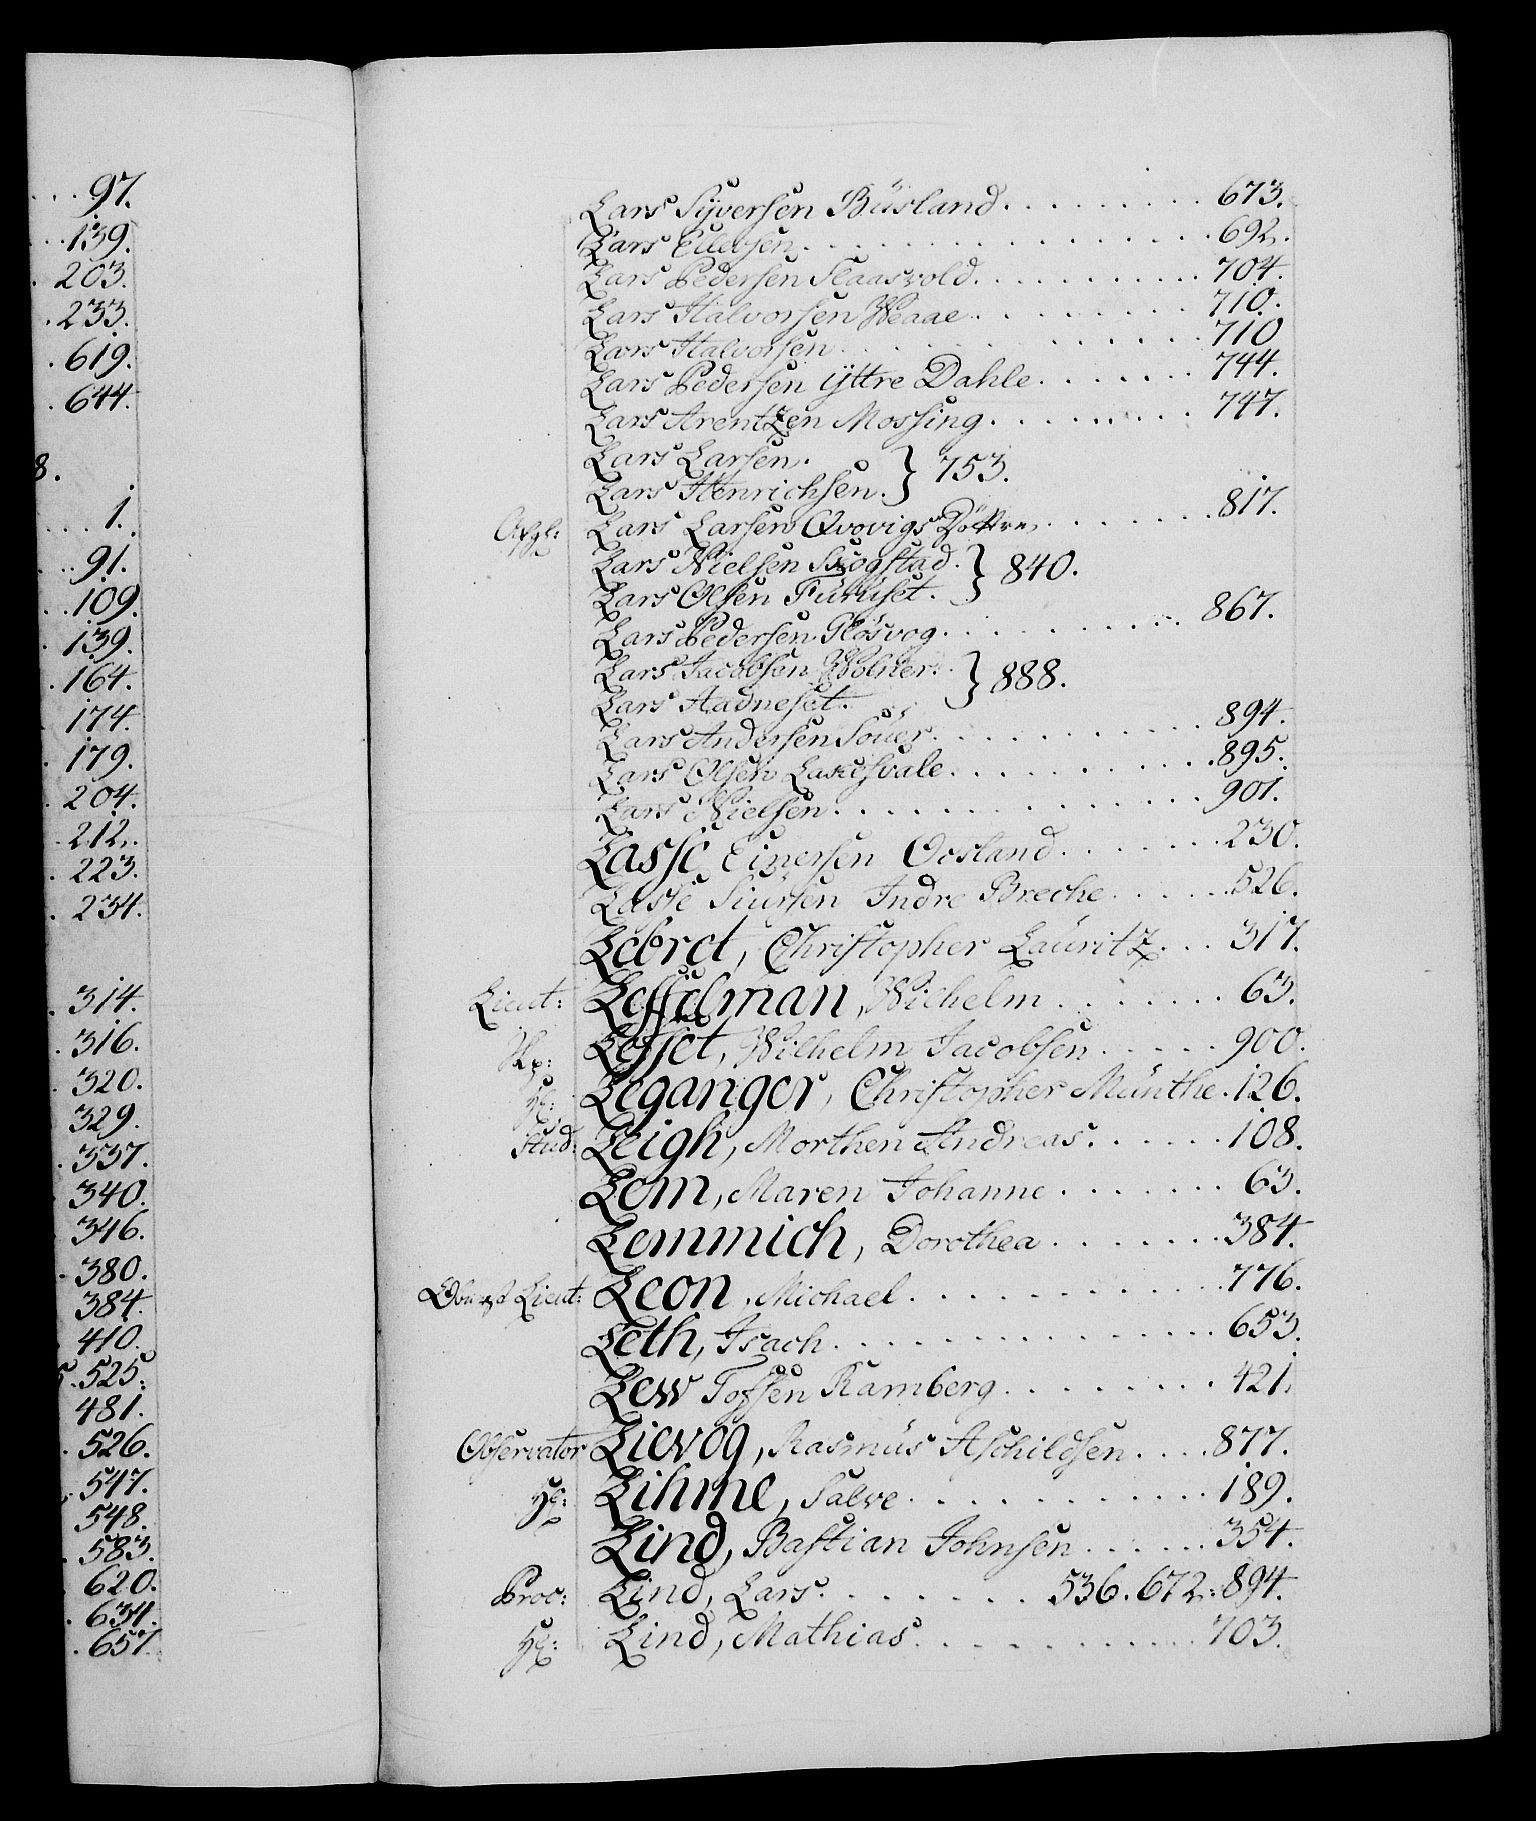 97.
139.
203.
233.
619.
644.
8.
1.
91.
109.
139.
164.
174.
179.
204.
212.
223.
234.
314.
316.
320.
329.
337.
340.
346.
380.
384.
410.
525.
481.
526.
547.
548.
583.
620.
634.
657.
Lars Syversen Büsland . . . . . . . . . 673.
Lars Eilersen . . . . . . . . . . . . . . 692.
Lars Pedersen Slaasvold . . . . . . . . . 704.
Lars Halvorsen Weaae . . . . . . . . . 710.
Lars Halvorsen . . . . . . . . . . . . 710
Lars Pedersen ÿttre Dahle . . . . . . . 744.
Lars Arentzen Mossing . . . . . . . . . 747.
Lars Larsen. } 753.
Lars Henrichsen.
Afgl: Lars Larsen Qvovigs Döttre . . . . . . . 817.
Lars Nielsen Skogstad. } 840.
Lars Olsen Furuset.
Lars Pedersen Flösvog . . . . . . . . . 867.
Lars Jacobsen Wolner. } 888.
Lars Aadneset.
Lars Andersen Söuer . . . . . . . . . . 894.
Lars Olsen . . . . . . . . . 895.
Lars Nielsen . . . . . . . . . . . . . 901.
Lasse Einersen Opsland . . . . . . . 230.
Lasse Siursen Indre Breche . . . . . 526.
Lebrot, Christopher Lauritz . . . 317.
Lieut: Leffelman, Wilhelm . . . . . . . 63.
Leffset, Wilhelm Jacobsen . . . . . 900.
Hr: Leganger, Christopher Münthe . 126.
Stud: Leigh, Morthen Andreas . . . . . . 108.
Lem, Maren Johanne . . . . . . . 63.
Lemmich, Dorothea . . . . . . . 384.
Oberst Lieut: Leon, Michael . . . . . . . . . . . . 776.
Leth, Isach . . . . . . . . . . . . . . 653.
Lew Tofsen Ramberg . . . . . . . . 421.
Observator Lievog, Rasmüs Aschildsen . . . . 877.
Hr: Lihme, Salve . . . . . . . . . . . . 189.
Lind, Bastian Johnsen . . . . . . 354.
Proc: Lind, Lars . . . . . . . 536. 672. 894.
Hr: Lind, Mathias . . . . . . . . . . . 703.